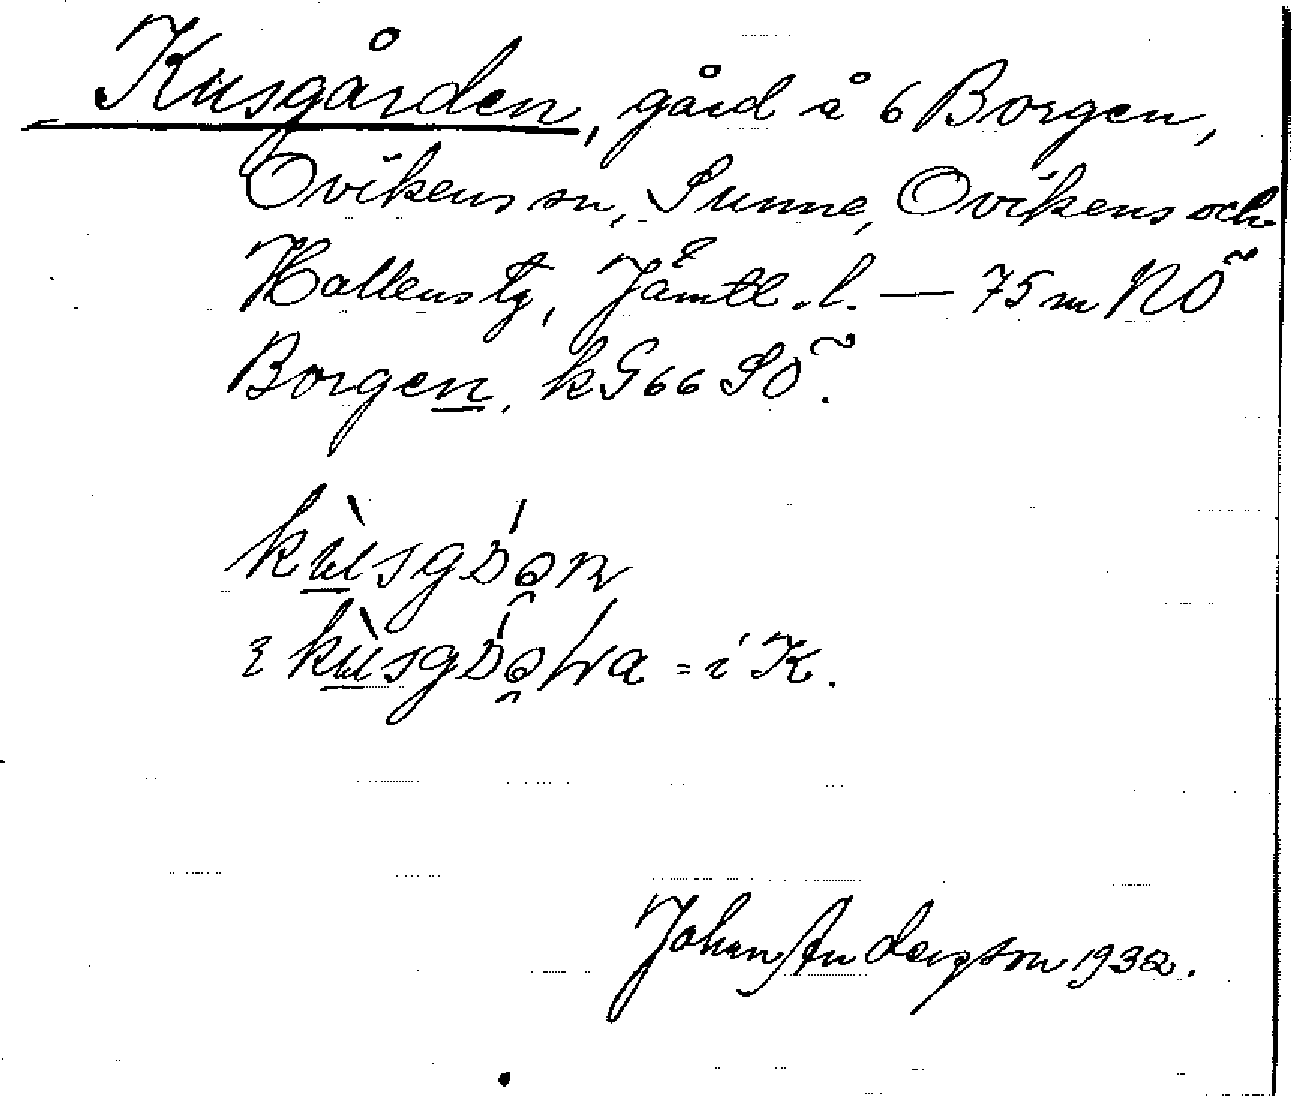 Kusgården, gård å 6 Borgen,
Ovikens sn, Sunne, Ovikens och
Hallens tg, Jämtl. l. — 75 m NÖ
Borgen, k G 66 SÖ.
= i K.
Johan Anderzson 1932.